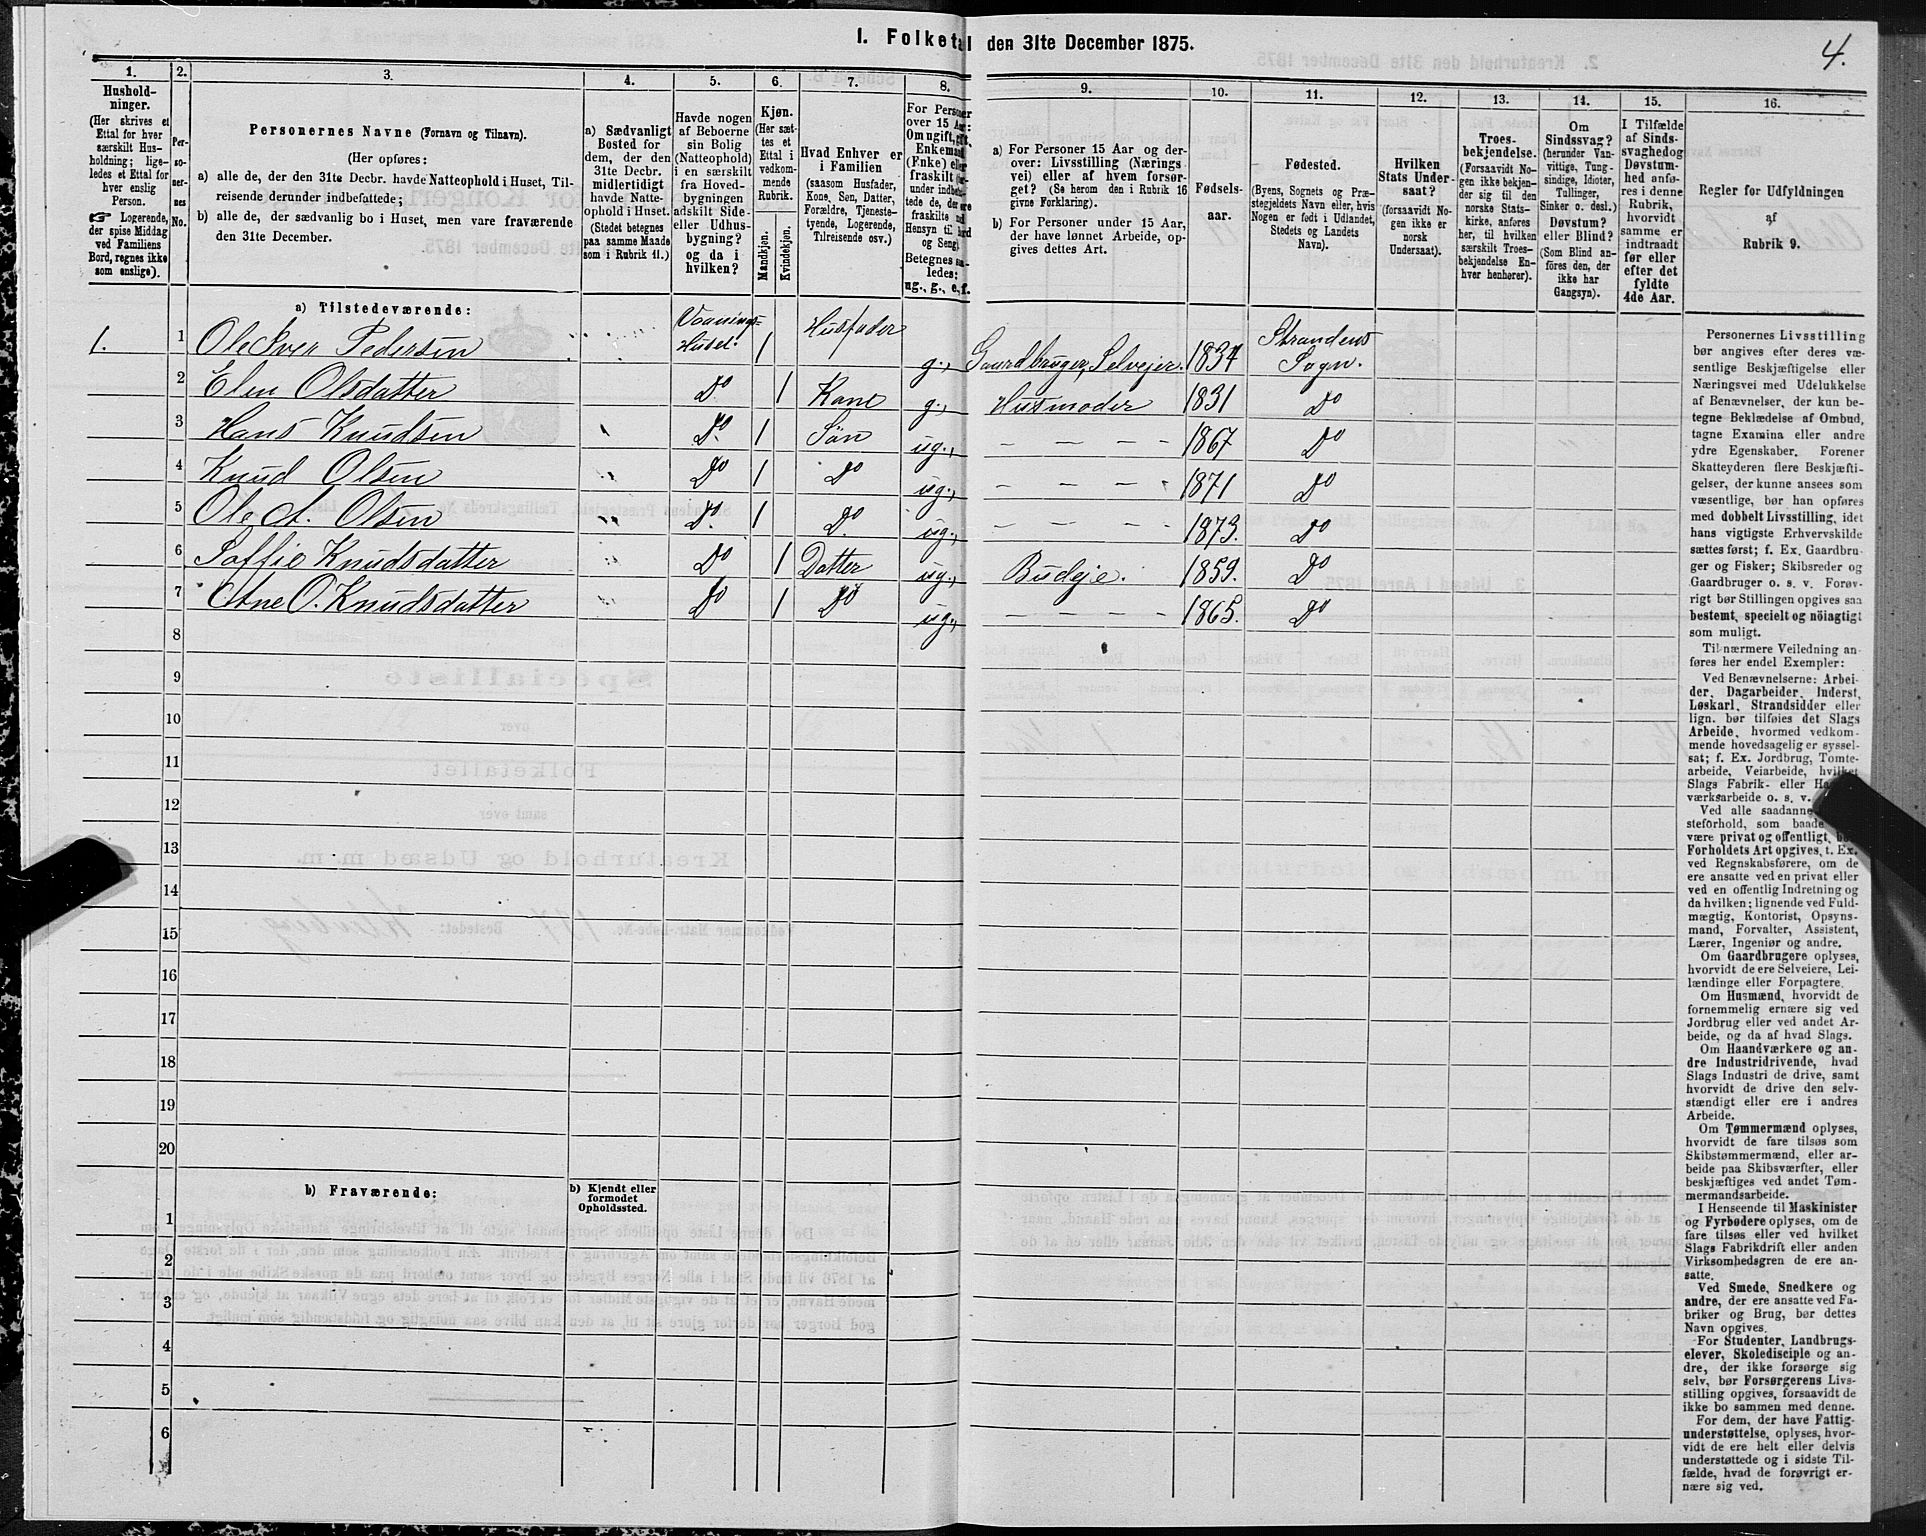 I. Folketal den 31te December 1875.
4.
1.
Hushold-
ninger.
(Her skrives et
Ettal for hver
særskilt Hus-
holdning; lige-
ledes et Ettal for
hver enslig
Person.
☞ Logerende,
der spise Middag
ved Familiens
Bord, regnes ikke
som enslige).
2.
Per-
so-
ner-
nes
No.
3.
Personernes Navne (Fornavn og Tilnavn).
(Her opføres:
a) alle de, der den 31te Decbr. havde Natteophold i Huset, Til-
reisende derunder indbefattede;
b) alle de, der sædvanlig bo i Huset, men vare fraværende
den 31te December.
4.
a) Sædvanligt
Bosted for
dem, der den
31te Decbr.
midlertidigt
havde Natte-
ophold i Huset.
(Stedet betegnes
paa samme Maade
som i Rubrik 11.)
5.
Havde nogen
af Beboerne
sin Bolig
(Natteophold)
i en særskilt
fra Hoved-
bygningen
adskilt Side-
eller Udhus-
bygning?
og da i
hvilken?
6.
Kjøn.
(Her sæt-
tes et
Ettal i
vedkom-
mende
Rubrik.
Mandkjøn.
Kvindekjøn.
7.
Hvad Enhver er
i Familien
(saasom Husfader,
Kone, Søn, Datter,
Forældre, Tjeneste-
tyende, Logerende,
Tilreisende osv.)
8.
For Personer
over 15 Aar:
Om ugift, gift,
Enkemand
(Enke) eller
fraskilt
Betegnes saa-
ledes:
ug., g., e, f.
9.
a) For Personer 15 Aar og der-
over: Livsstilling (Nærings
vei) eller af hvem forsør-
get? (Se herom den i Rubrik 16
givne Forklaring).
b) For Personer under 15 Aar,
der have lønnet Arbeide, op-
gives dettes Art.
10.
Fødsels-
aar.
11.
Fødested.
(Byens, Sognets og Præ-
stegjeldets Navn eller, hvis
Nogen er født i Udlandet,
Stedets og Landets
Navn).
12.
Hvilken
Stats Under-
saat?
(forsaavidt No-
gen ikke er
norsk
Undersaat).
13.
Troes-
bekjendelse.
(Forsaavidt No-
gen ikke bekjen-
der sig til den
norske Stats-
kirke, anføres
her, til hvilken
særskilt Troes-
bekjendelse En-
hver henhører).
14.
Om
Sindssvag?
(herunder Van-
vittige, Tung-
sindige, Idioter,
Tullinger,
Sinker o. desl.)
Døvstum?
eller Blind?
(Som Blind an-
føres den, der
ikke har
Gangsyn).
15.
I Tilfælde
af Sinds-
svaghed og
Døvstum-
hed anfø-
res i denne
Rubrik,
hvorvidt
samme er
indtraadt
før eller
efter det
fyldte
4de Aar.
16.
Regler for Udfyldningen
af
Rubrik 9.
a) Tilstedeværende:
1. 1 Ole Iver Pedersen Vaanings= Huset. 1 Husfader g., Gaardbruger, Selvejer. 1834 Strandens Sogn.
2 Elen Olsdatter Do 1 Kone g., Husmoder 1831 Do
3 Hans Knudsen Do. 1 Søn ug., — — — — 1867 Do
4 Knud Olsen Do 1 Do ug., — — — 1871 Do
5 Ole A. Olsen Do. 1 Do. ug., — — — — 1873. Do
6 Soffie Knudsdatter Do 1 Datter ug., Budeje. 1859. Do
7 Ane O. Knudsdatter Do 1 Do ug., — — — — 1865. Do
8
9
10
11
12
13
14
15
16
17
18
19
20
b) Fraværende:
b) Kjendt eller
formodet
Opholdssted.
1
2
3
4
5
6
Personernes Livsstilling
bør angives efter deres væ-
sentlige Beskjæftigelse eller
Næringsvei med Udelukkelse
af Benævnelser, der kun be-
tegne Beklædelse af Ombud,
tagne Examina eller andre
ydre Egenskaber. Forener
Skatteyderen flere Beskjæfti-
gelser, der kunne ansees som
væsentlige, bør han opføres
med dobbelt Livsstilling, idet
hans vigtigste Erhvervskilde
sættes først; f. Ex. Gaardbru-
ger og Fisker; Skibsreder og
Gaardbruger o. s. v. Forøv-
rigt bør Stillingen opgives saa
bestemt, specielt og nöiagtigt
som muligt.
Til nærmere Veiledning an-
føres her endel Exempler:
Ved Benævnelserne: Arbei-
der, Dagarbeider, Inderst,
Løskarl, Strandsidder eller
lign. bør tilføies det Slags
Arbeide, hvormed vedkom-
mende hovedsagelig er syssel-
sat; f. Ex. Jordbrug, Tomte-
arbeide, Veiarbeide, hvilket
Slags Fabrik- eller Haand-
værksarbeide o. s. v.
Ved alle saadanne
steforhold, som baade
være privat og offentligt, bør
Forholdets Art opgives, t. Ex.
ved Regnskabsførere, om de
ere ansatte ved en privat eller
ved en offentlig Indretning og
da hvilken; lignende ved Fuld-
mægtig, Kontorist, Opsyns-
mand, Forvalter, Assistent,
Lærer, Ingeniør og andre.
Om Gaardbrugere oplyses,
hvorvidt de ere Selveiere, Lei-
lændinge eller Forpagtere.
Om Husmænd, hvorvidt de
fornemmelig ernære sig ved
Jordbrug eller ved andet Ar-
beide, og da af hvad Slags.
Om Haandværkere og an-
dre Industridrivende, hvad
Slags Industri de drive, samt
hvorvidt de drive den selv-
stændigt eller ere i andres
Arbeide.
Om Tømmermænd oplyses,
hvorvidt de fare tilsøs som
Skibstømmermænd, eller ar-
beide paa Skibsværfter, eller
beskjæftiges ved andet Tøm-
mermandsarbeide.
I Henseende til Maskinister
og Fyrbødere oplyses, om de
fare tilsøs eller ved hvilket
Slags Fabrikdrift eller anden
Virksomhedsgren de ere an-
satte.
Ved Smede, Snedkere og
andre, der ere ansatte ved Fa-
briker og Brug, bør dettes
Navn opgives.
For Studenter, Landbrugs-
elever, Skoledisciple og an-
dre, der ikke forsørge sig
selv, bør Forsørgerens Livs-
stilling opgives, forsaavidt de
ikke bo sammen med denne.
For dem, der have Fattig-
understøttelse, oplyses, hvor-
vidt de ere helt eller delvis
understøttede og i sidste Til-
fælde, hvad de forøvrigt er-
nære sig ved.